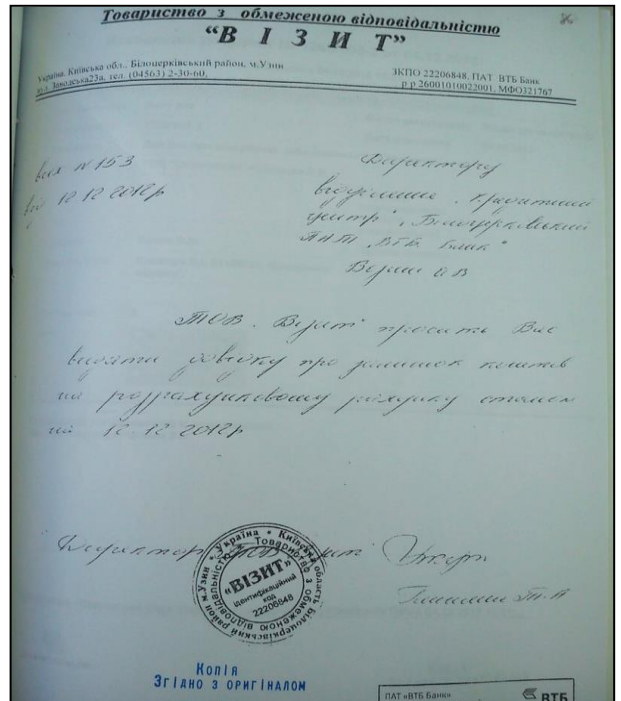 Товариство з обмеженою відповідальністю
“В І З И Т”
Україна, Київська обл., Білоцерківський район, м.Узин
вул. Заводська23а, тел. (04563) 2-30-60,
ЗКПО 22206848, ПАТ ВТБ Банк
р р 26001010022001, МФО321767
вих №153
від 12 12 2012р
Директору
відділення „Кредитний
центр" „Білоцерківський
ПАТ „ВТБ Банк"
ТОВ „Візит" просить Вас
видати довідку про залишок коштів
на розрахунковому рахунку станом
на 12 12 2012р
Директор
Україна * Київська область Білоцерківський район м.Узин
Товариство з обмеженою відповідальністю
«ВІЗИТ»
Ідентифікаційний
код
22206848
Копія
Згідно з оригіналом
ПАТ «ВТБ Банк»
ВТБ